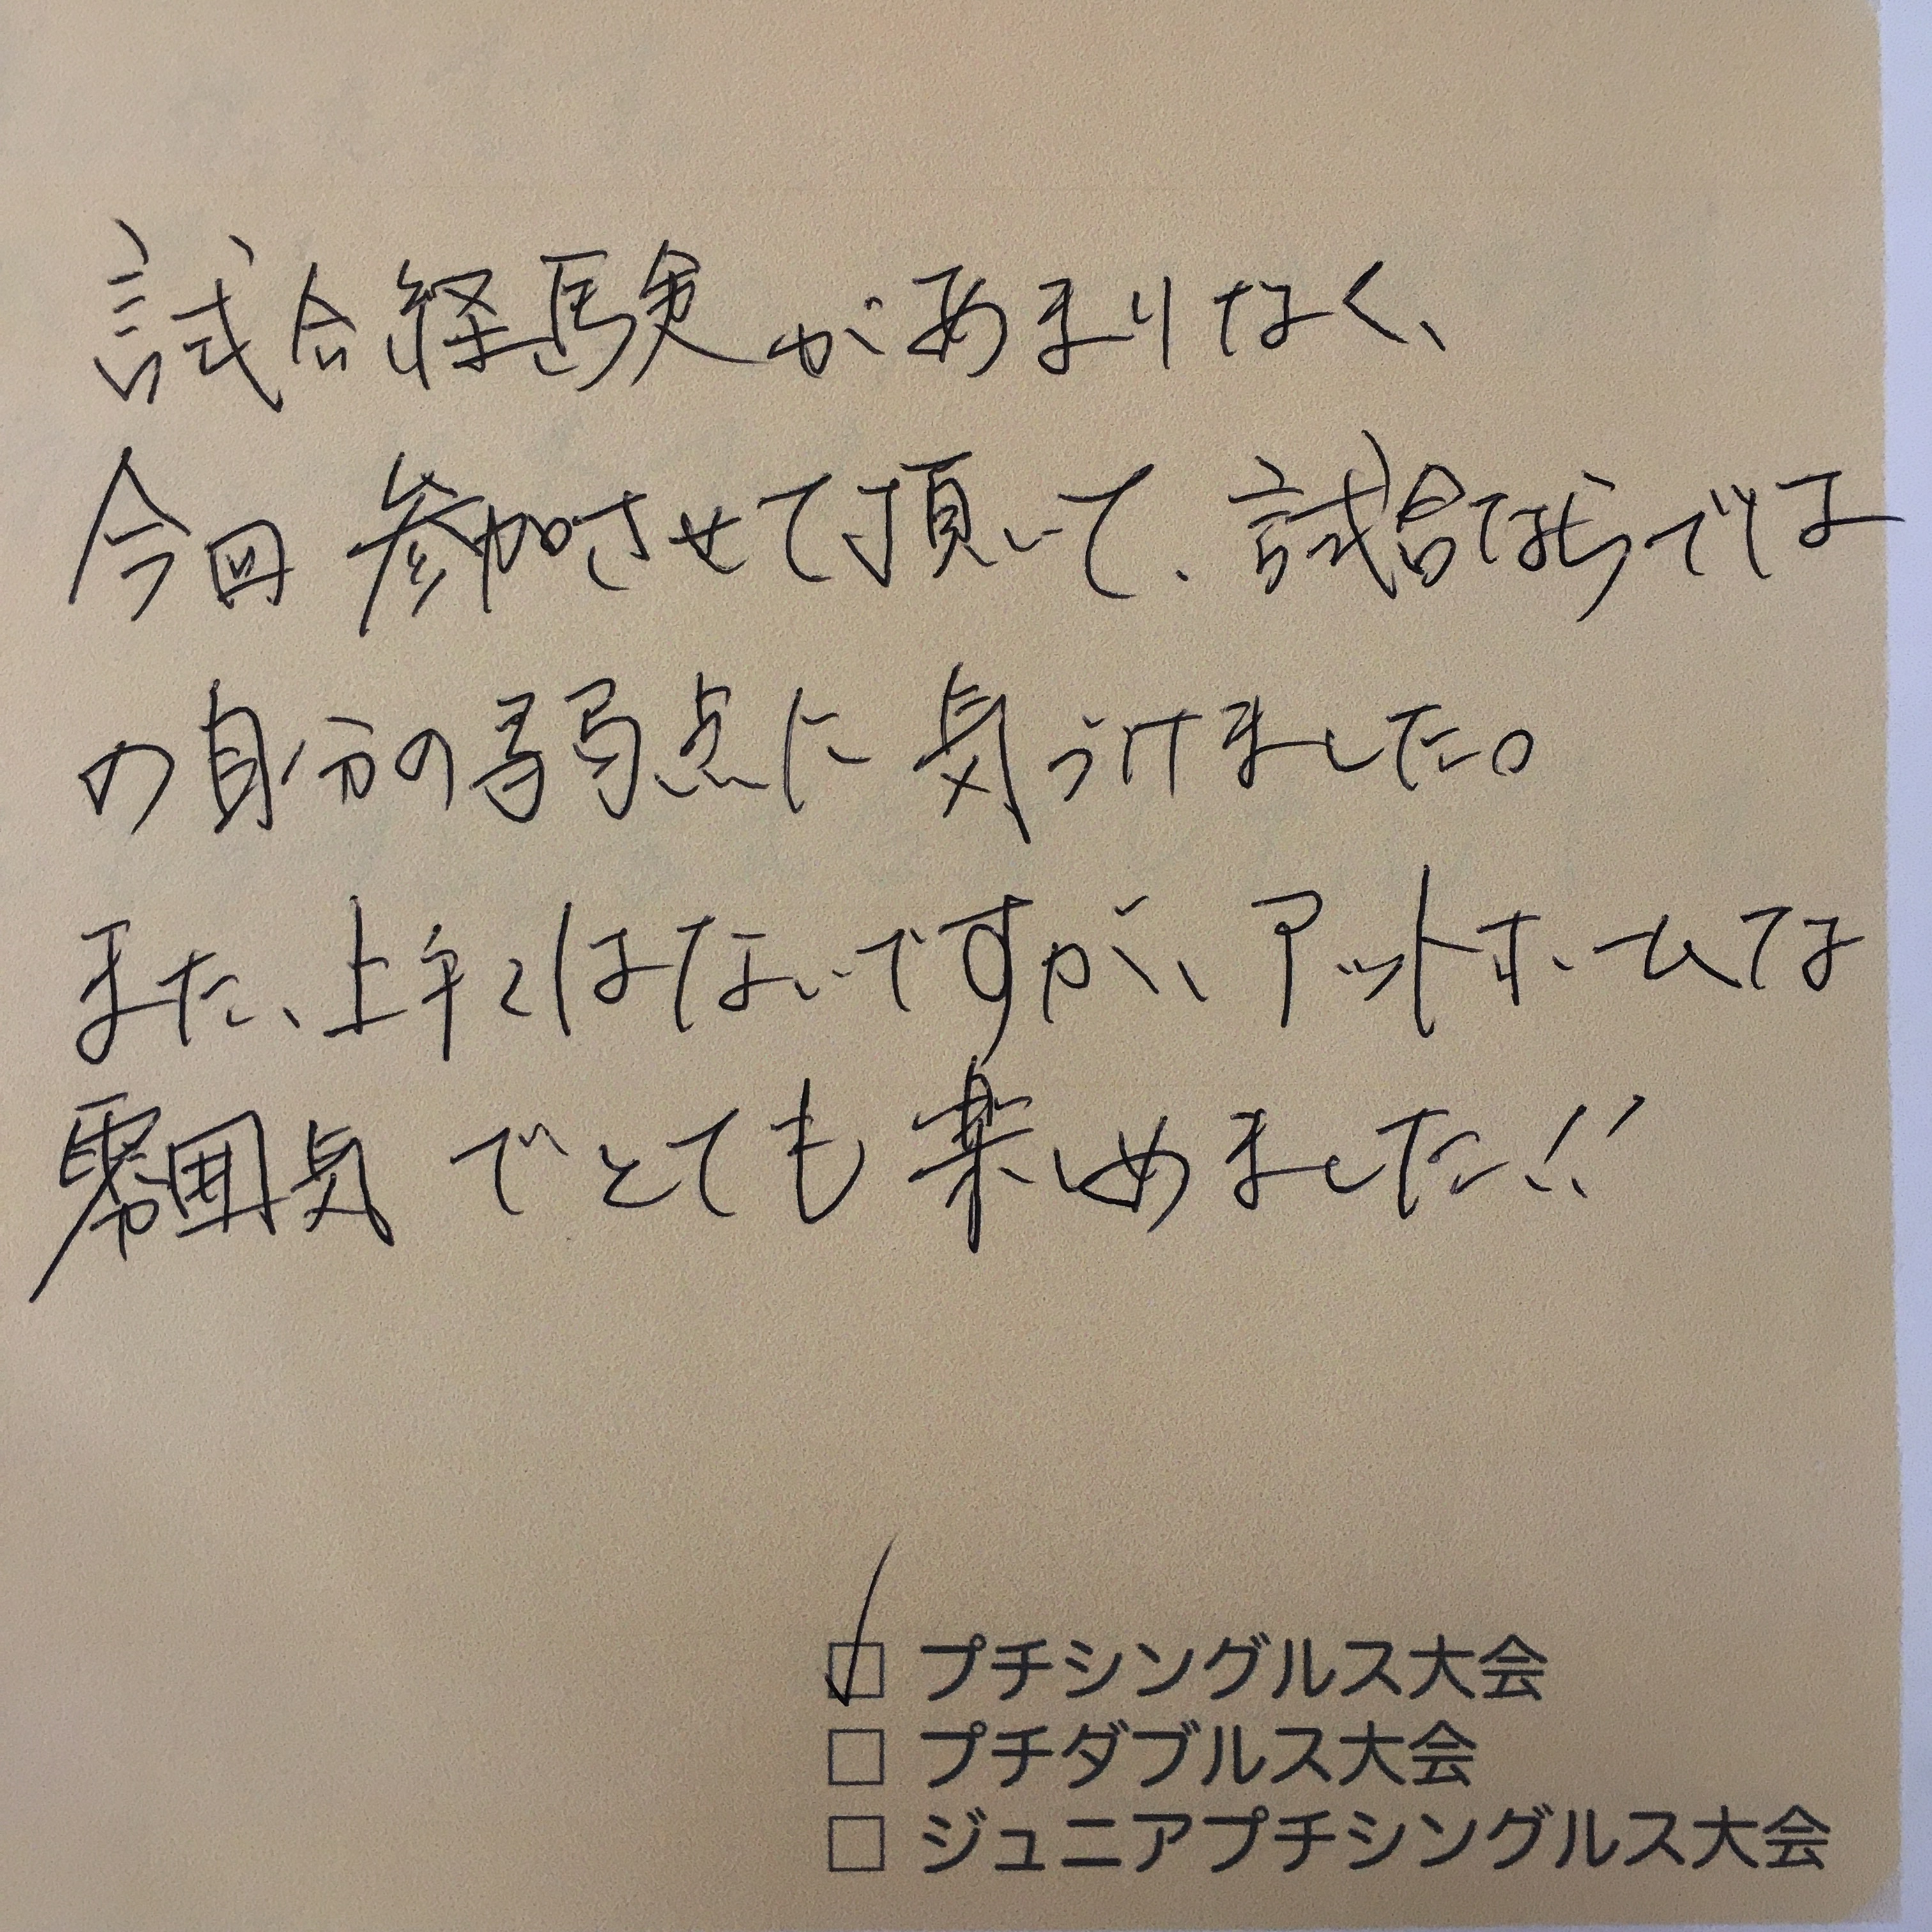 試合経験があまりなく、
今回 参加させて頂いて、試合ならでは
の自分の弱点に気づけました。
また、上手くはないですが、アットホームな
雰囲気でとても楽しめました!!
☑ プチシングルス大会
□ プチダブルス大会
□ ジュニアプチシングルス大会